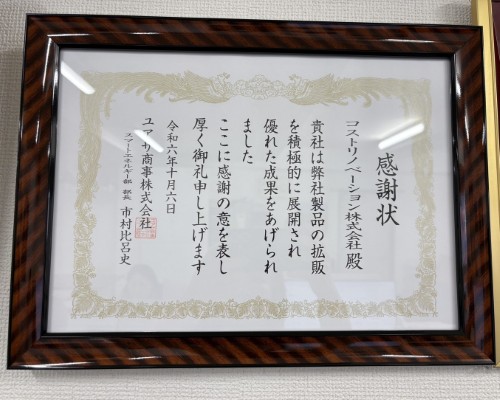 感謝状
コストリノベーション株式会社 殿
貴社は弊社製品の拡販
を積極的に展開され
優れた成果をあげられ
ました
ここに感謝の意を表し
厚く御礼申し上げます
令和六年十月六日
ユアサ商事株式会社
スマートエネルギー部 部長 市村比呂史